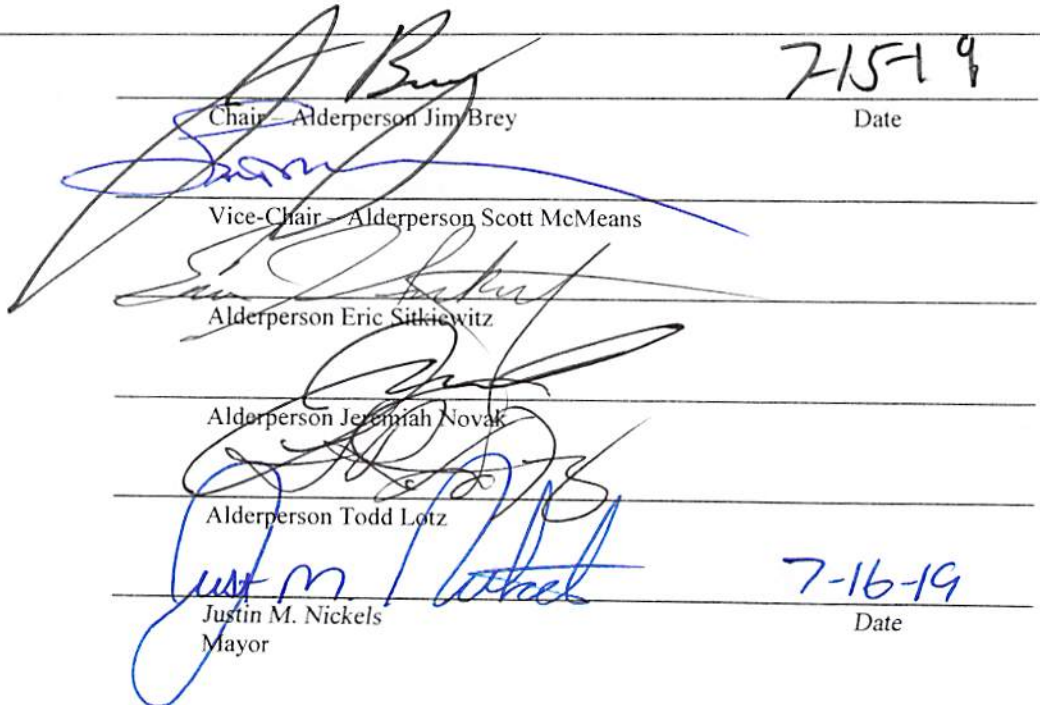 J Brey 7-15-19
Chair – Alderperson Jim Brey Date
Vice-Chair – Alderperson Scott McMeans
Alderperson Eric Sitkiewitz
Alderperson Jeremiah Novak
Alderperson Todd Lotz
Just M. Nickels 7-16-19
Justin M. Nickels Date
Mayor